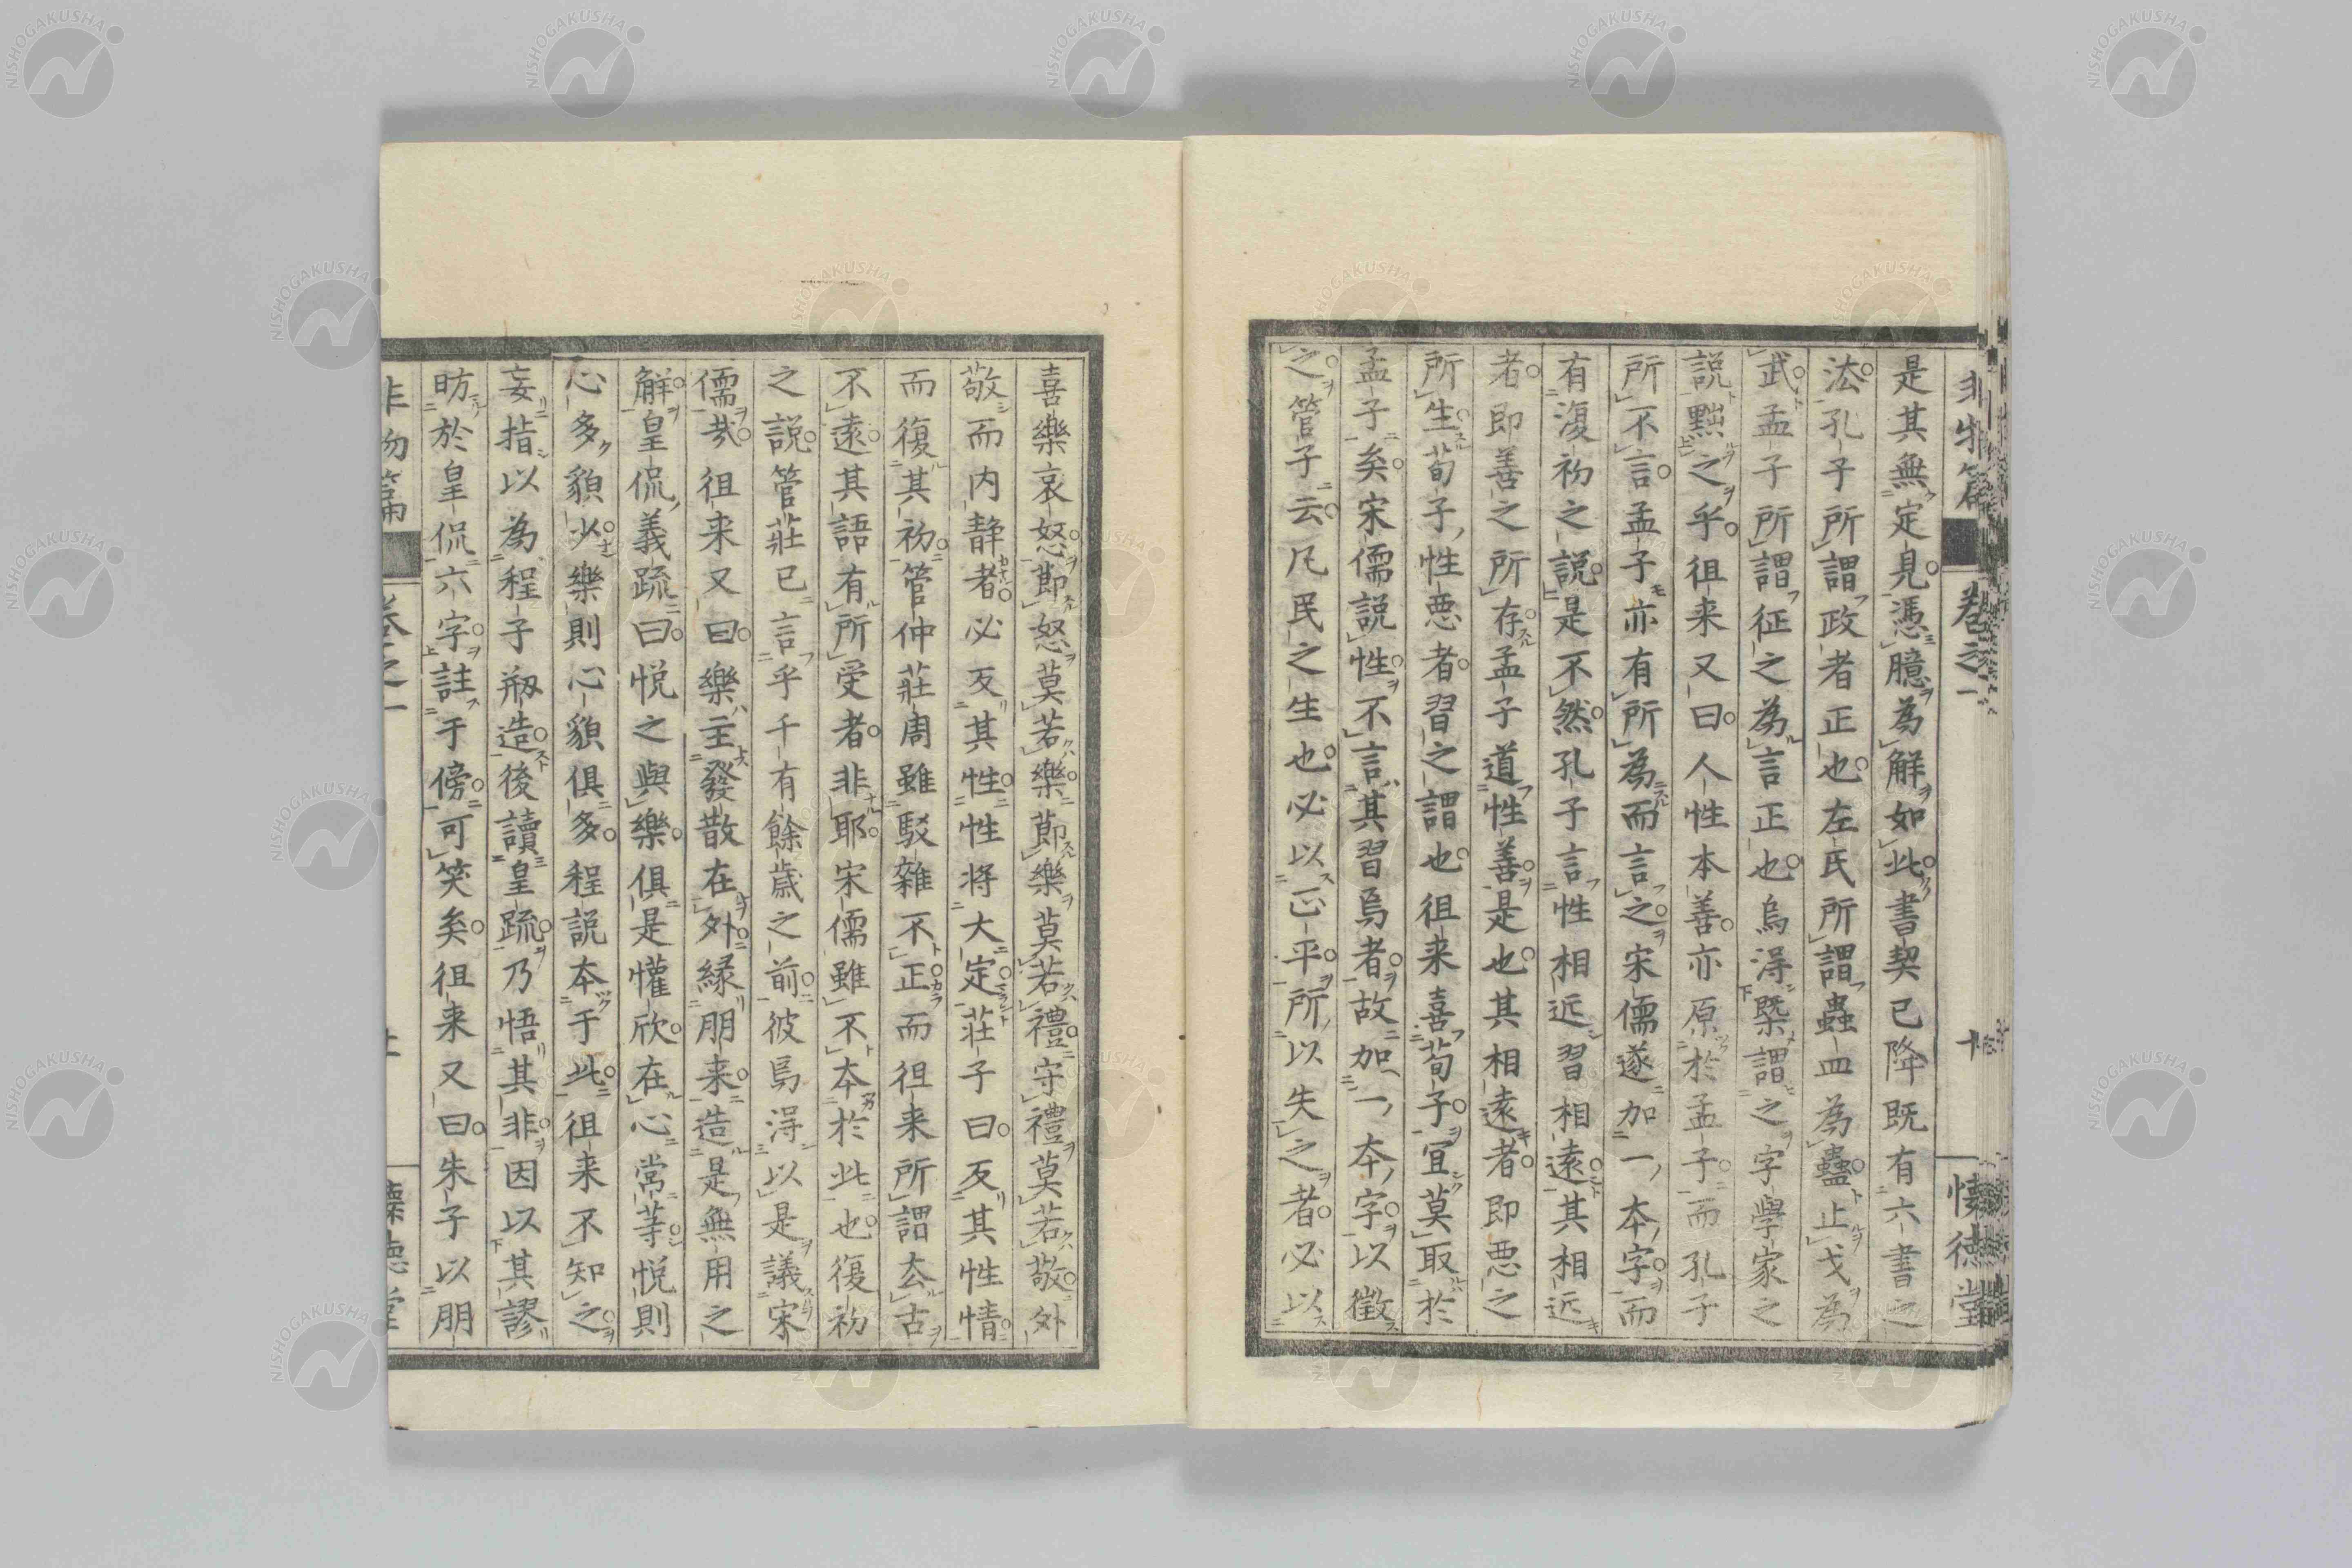 非物篇 巻之一 十 懐徳堂
是其無定見憑臆為解如此書契已降既有六書之
法孔子所謂政者正也左氏所謂蟲皿為蠱止戈為
武孟子所謂征之為言正也烏得槩謂之字學家之
説黜之乎徂来又曰人性本善亦原於孟子而孔子
所不言孟子亦有所為而言之宋儒遂加一本字而
有復初之説是不然孔子言性相近習相遠其相近
者即善之所存孟子道性善是也其相遠者即悪之
所生荀子性悪者習之謂也徂来喜荀子宜莫取於
孟子矣宋儒説性不言其習烏者故加一本字以徴
之管子云凡民之生也必以正平所以失之者必以
喜樂哀怒節怒莫若樂節樂莫若禮守禮莫若敬外
敬而内静者必反其性性将大定莊子曰反其性情
而復其初管仲莊周雖駁雜不正而徂来所謂去古
不遠其語有所受者非耶宋儒雖不本於此也復初
之説管莊已言乎千有餘歳之前彼烏得以是議宋
儒哉徂来又曰樂主發散在外緣朋来造是無用之
解皇侃義疏曰悦之與樂俱是懽欣在心常等悦則
心多貌少樂則心貌俱多程説本于此徂来不知之
妄指以為程子剏造後讀皇疏乃悟其非因以其謬
昉於皇侃六字註于傍可笑矣徂来又曰朱子以朋
非物篇 巻之一 懐徳堂